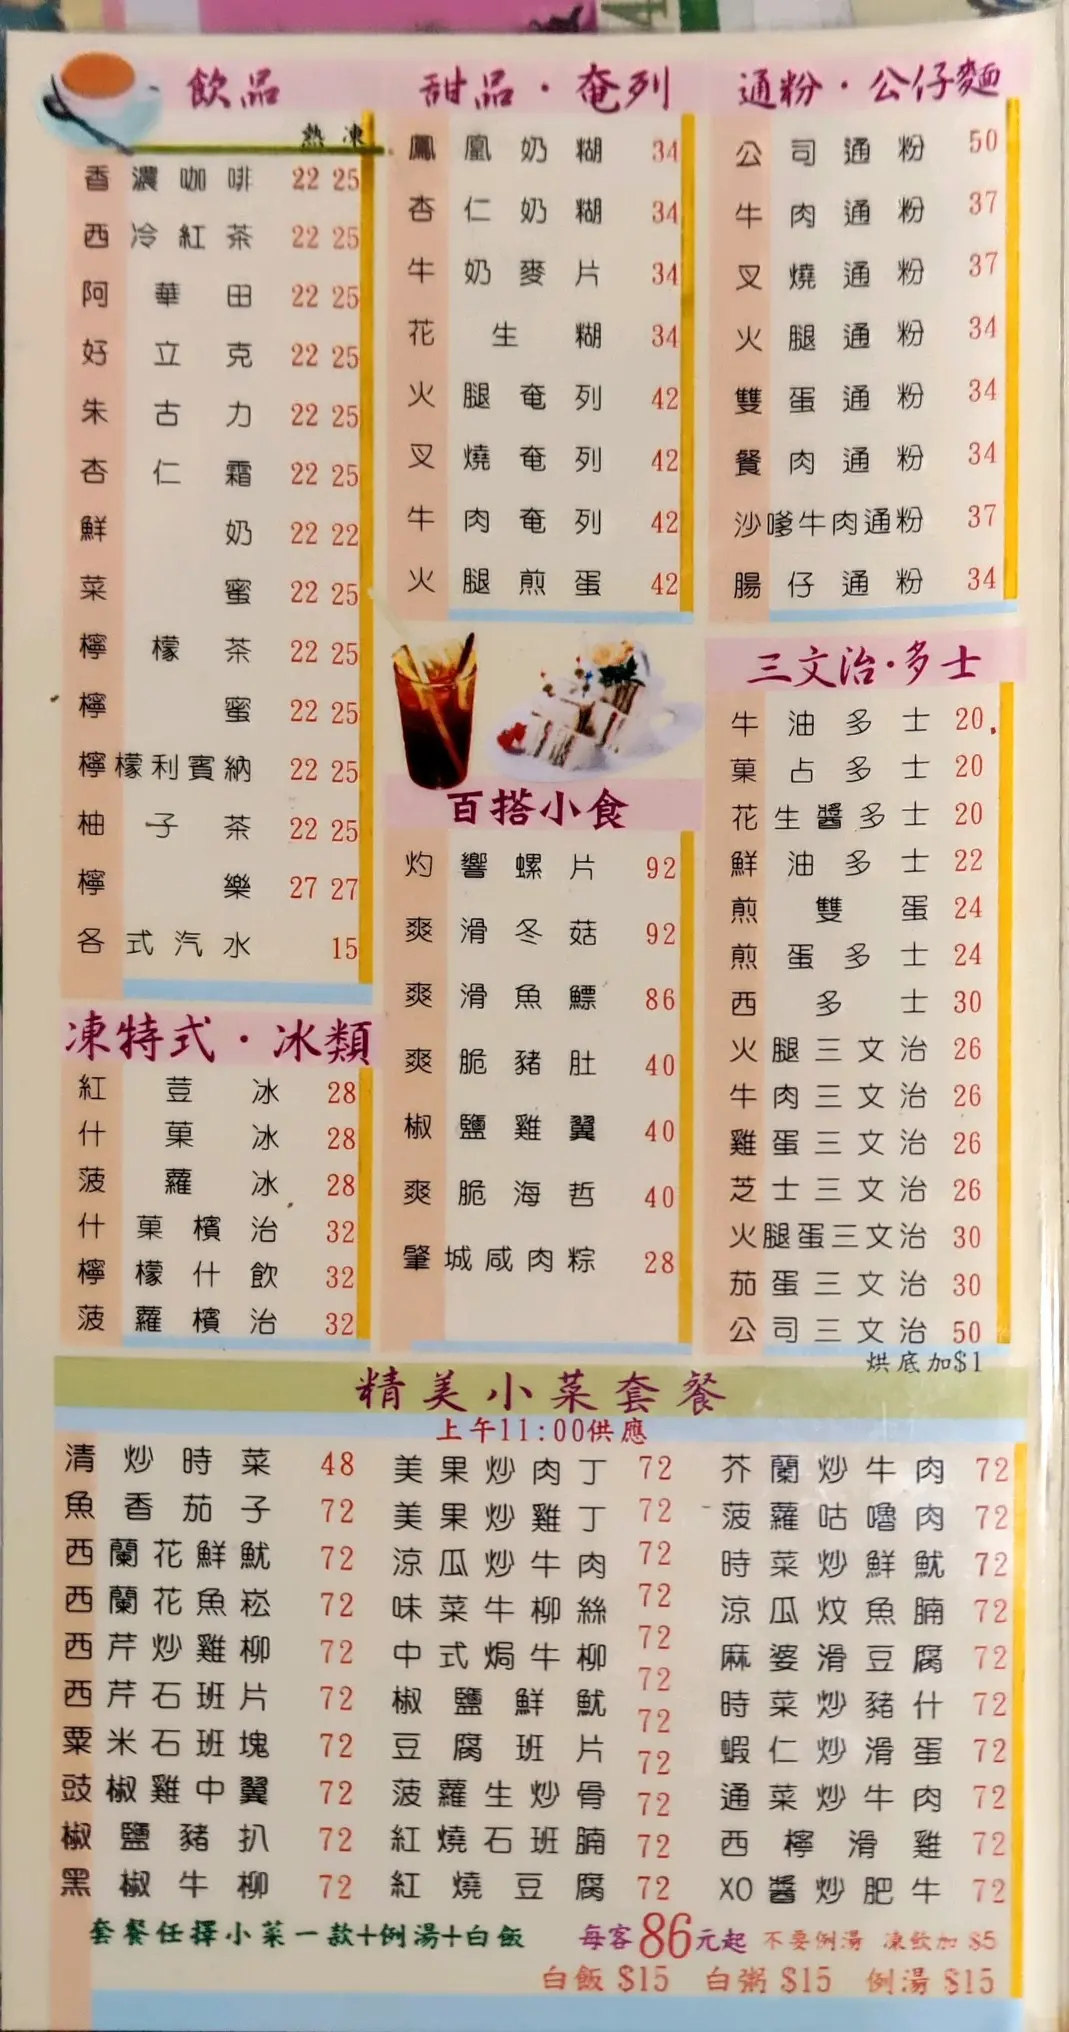 飲品
熱 凍
香濃咖啡 22 25
西冷紅茶 22 25
阿華田 22 25
好立克 22 25
朱古力 22 25
杏仁霜 22 25
鮮奶 22 22
菜蜜 22 25
檸檬茶 22 25
檸蜜 22 25
檸檬利賓納 22 25
柚子茶 22 25
檸樂 27 27
各式汽水 15
凍特式·冰類
紅荳冰 28
什菓冰 28
菠蘿冰 28
什菓檳治 32
檸檬什飲 32
菠蘿檳治 32
甜品·奄列
鳳凰奶糊 34
杏仁奶糊 34
牛奶麥片 34
花生糊 34
火腿奄列 42
叉燒奄列 42
牛肉奄列 42
火腿煎蛋 42
百搭小食
灼響螺片 92
爽滑冬菇 92
爽滑魚鰾 86
爽脆豬肚 40
椒鹽雞翼 40
爽脆海哲 40
肇城咸肉粽 28
通粉·公仔麵
公司通粉 50
牛肉通粉 37
叉燒通粉 37
火腿通粉 34
雙蛋通粉 34
餐肉通粉 34
沙嗲牛肉通粉 37
腸仔通粉 34
三文治·多士
牛油多士 20
菓占多士 20
花生醬多士 20
鮮油多士 22
煎雙蛋 24
煎蛋多士 24
西多士 30
火腿三文治 26
牛肉三文治 26
雞蛋三文治 26
芝士三文治 26
火腿蛋三文治 30
茄蛋三文治 30
公司三文治 50
烘底加$1
精美小菜套餐
上午11:00供應
清炒時菜 48
魚香茄子 72
西蘭花鮮魷 72
西蘭花魚崧 72
西芹炒雞柳 72
西芹石班片 72
粟米石班塊 72
豉椒雞中翼 72
椒鹽豬扒 72
黑椒牛柳 72
美果炒肉丁 72
美果炒雞丁 72
涼瓜炒牛肉 72
味菜牛柳絲 72
中式焗牛柳 72
椒鹽鮮魷 72
豆腐班片 72
菠蘿生炒骨 72
紅燒石班腩 72
紅燒豆腐 72
芥蘭炒牛肉 72
菠蘿咕嚕肉 72
時菜炒鮮魷 72
涼瓜炆魚腩 72
麻婆滑豆腐 72
時菜炒豬什 72
蝦仁炒滑蛋 72
通菜炒牛肉 72
西檸滑雞 72
XO醬炒肥牛 72
套餐任擇小菜一款+例湯+白飯 每客86元起 不要例湯 凍飲加 $5
白飯 $15 白粥 $15 例湯 $15